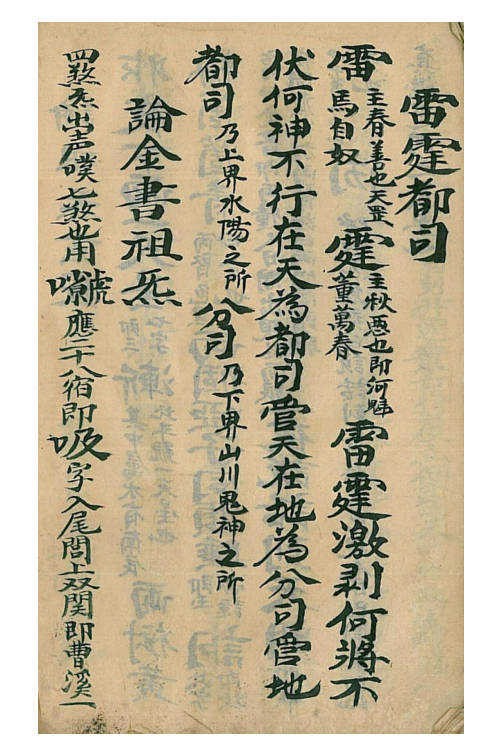 雷霆都司
雷主春善也天罡馬自奴霆主秋恶也即河魁董萬春雷霆激剥何將不
伏何神不行在天為都司管天在地為分司管地
都司乃上界水陽之所分司乃下界山川鬼神之所
論金書祖炁
罡煞炁出声噗七煞也用嘹應二十八宿即吸字入尾閭上双関即曹溪一